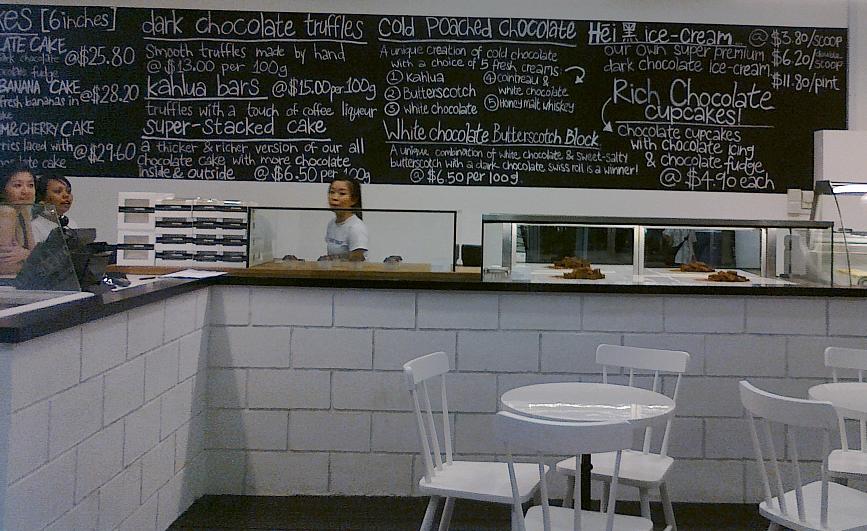 KES [6inches]
LATE CAKE
@$25.80
chocolate fudge
BANANA CAKE
fresh bananas in
@$28.20
CHERRY CAKE
laced with
@$29.60
cake
dark chocolate truffles
Smooth truffles made by hand
@ $13.00 per 100g
kahlua bars @$15.00 per 100g
truffles with a touch of coffee liqueur
super-stacked cake
a thicker & richer version of our all
chocolate cake with more chocolate
inside & outside @ $6.50 per 100g
COLD POACHED CHOCOLATE
A unique creation of cold chocolate
with a choice of 5 fresh creams:
① Kahlua
② Butterscotch
③ White chocolate
④ Cointreau &
white chocolate
⑤ Honey malt whiskey
White chocolate Butterscotch Block
A unique combination of white chocolate & sweet-salty
butterscotch with a dark chocolate swiss roll is a winner!
@ $6.50 per 100g
Hei 黑 ice-cream @ $3.80/scoop
our own super premium
dark chocolate ice-cream
$6.20/double scoop
$11.80/pint
Rich Chocolate
cupcakes!
chocolate cupcakes
with chocolate icing
& chocolate fudge
@ $4.90 each